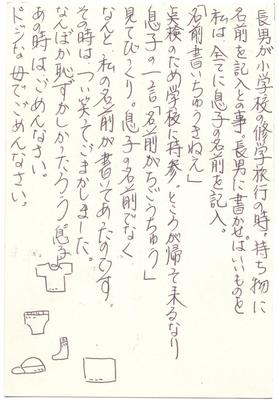 長男が小学校の修学旅行の時。持ち物に
名前を記入との事。長男に書かせばいいものを
私は全てに息子の名前を記入。
「名前書いちゅうきねえ」
点検のため学校に持参。ところが帰って来るなり
息子の一言「名前がちごうちゅう」
見てびっくり。息子の名前でなく
なんと、私の名前が書いてあたのです。
その時は、つい笑ってごまかしました。
なんぼか恥ずかしかったろう息子
あの時はごめんなさい。
ドジな母でごめんなさい。